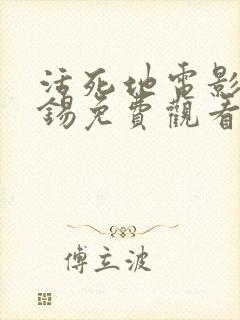 活死地電影
錫免費觀看
傅立波